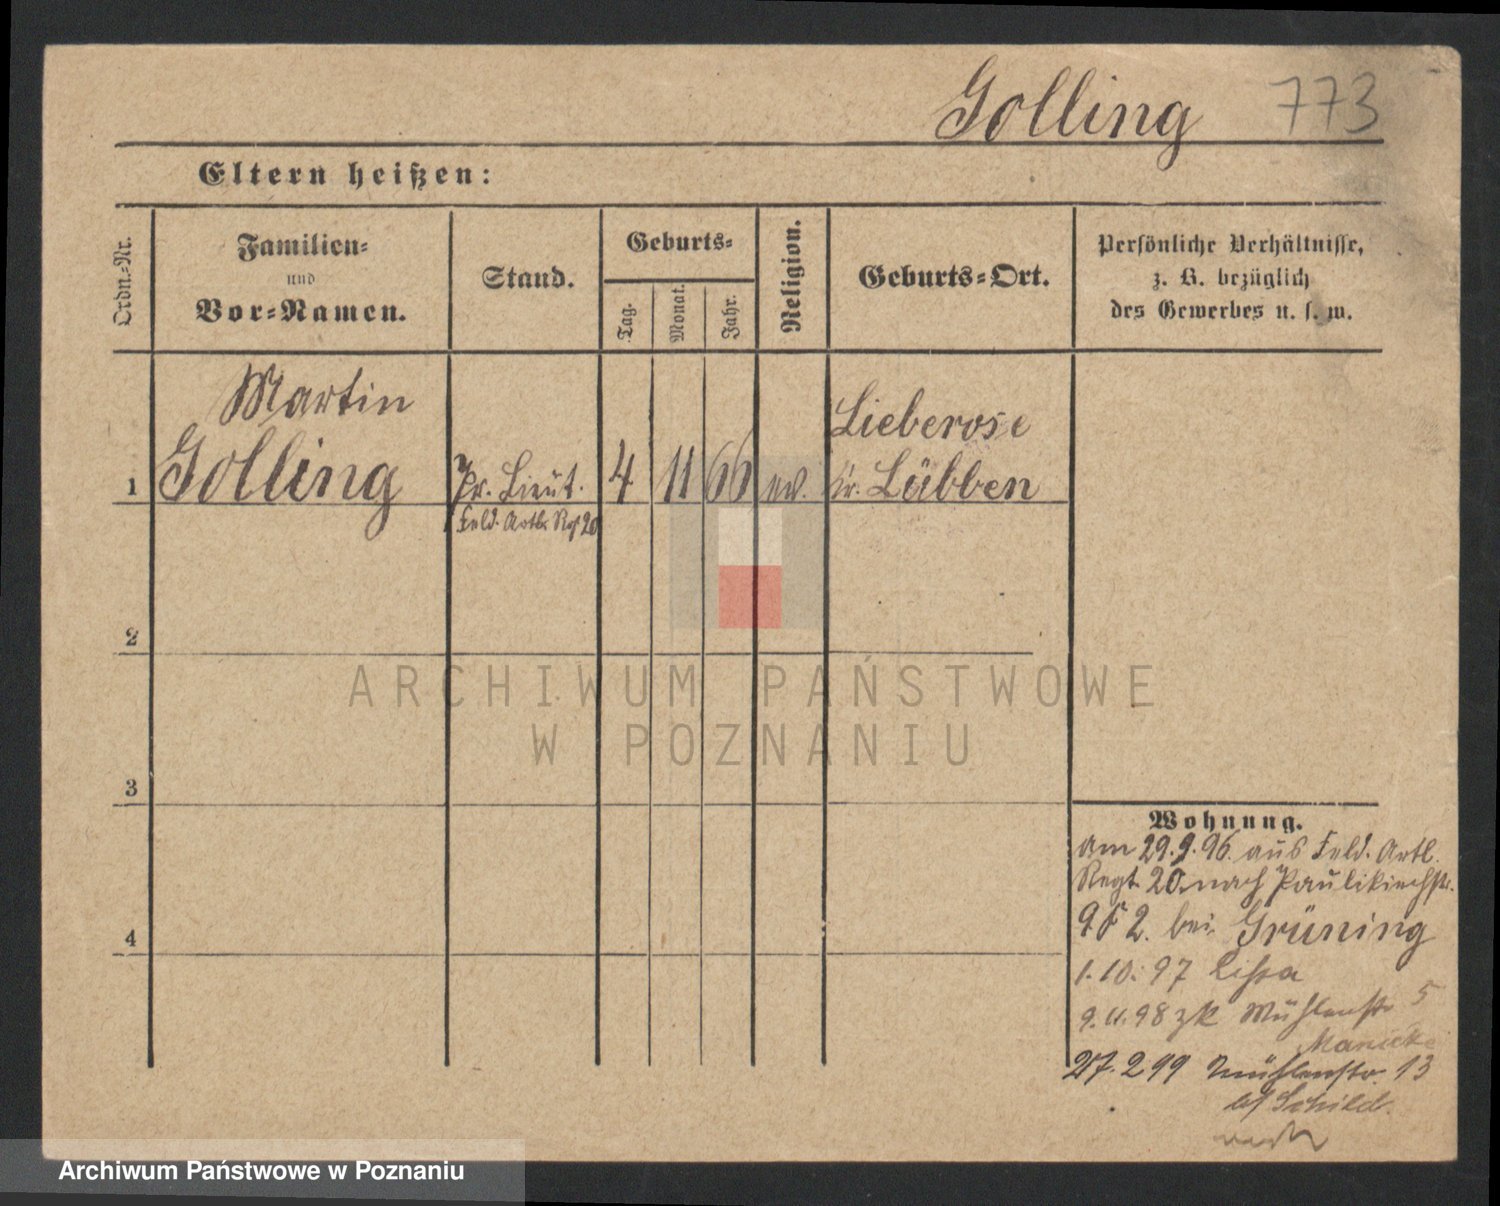 Golling 773
Eltern heißen:
Ordn.-Nr.
Familien-
und
Vor-Namen.
Stand.
Geburts-
Tag.
Monat.
Jahr.
Religion.
Geburts-Ort.
Persönliche Verhältnisse,
z. B. bezüglich
des Gewerbes u. s. w.
Martin
Lieberose
1 Golling Pr. Lieut. 4 11 66 ev. Kr. Lübben
Feld. Artl. Rgt 20
2
3
4
Wohnung.
Am 29.9.96. aus Feld. Artl.
Regt. 20. nach Paulikirchstr.
9 2. bei Grüning
1.10.97 Lissa
9.11.98 zk Mühlenstr 5
27.2 99 Mühlenstr. 13
b/ Schild.
ARCHIWUM PAŃSTWOWE
W POZNANIU
Archiwum Państwowe w Poznaniu